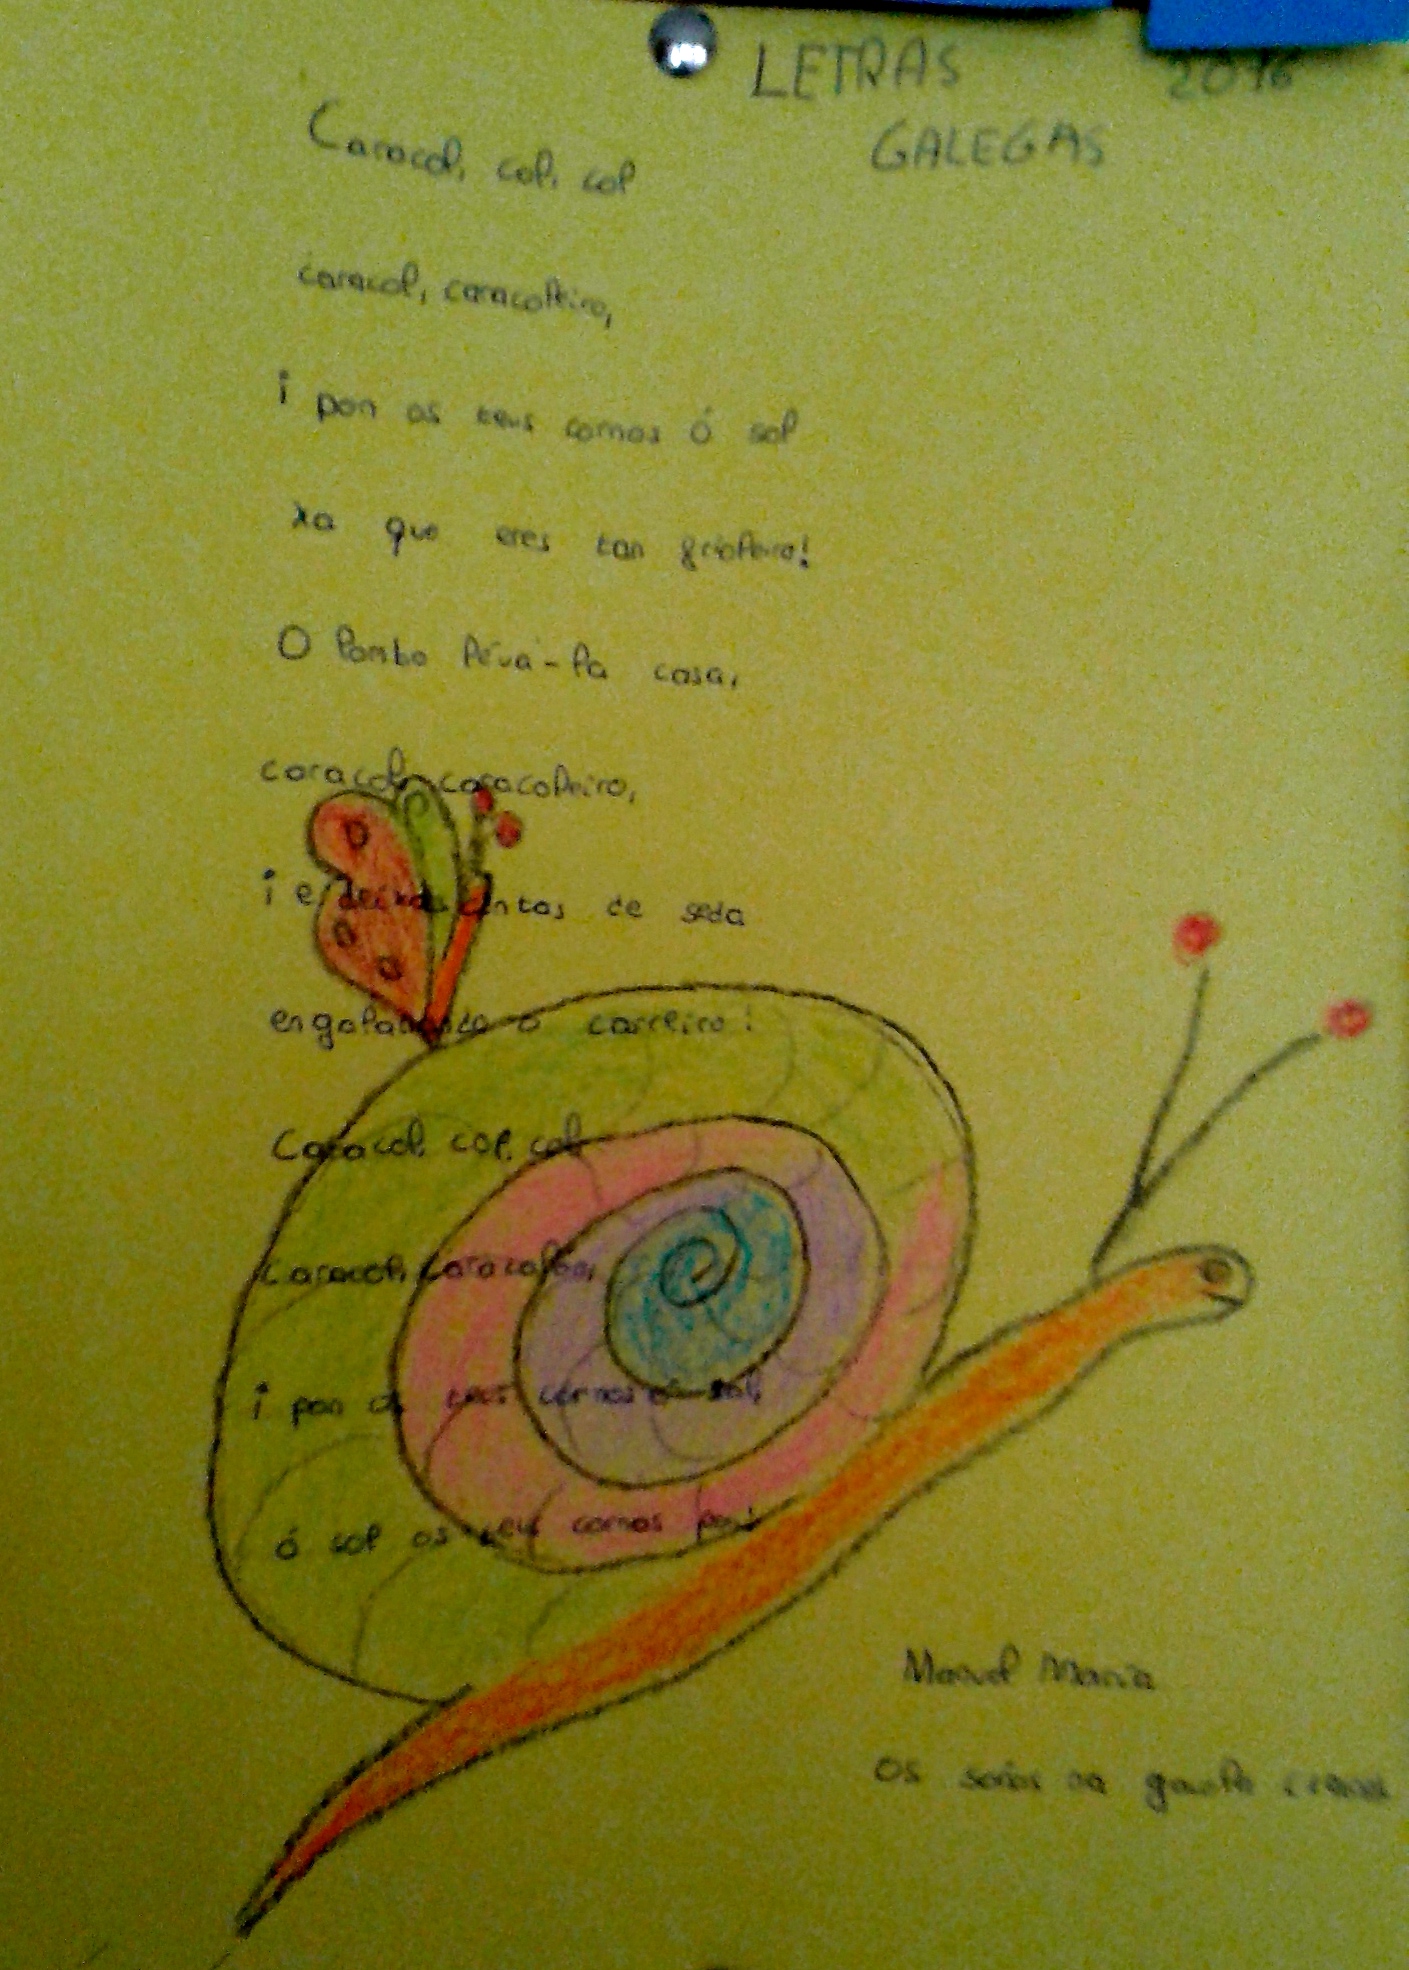 LETRAS 2016
GALEGAS
Caracol, col, col
caracol, caracoleiro,
¡ pon os teus cornos ó sol
xa que eres tan grioleiro!
O lombo léva-la casa,
caracol, caracoleiro,
¡ e deixas cintas de seda
engalanando o carreiro!
Caracol, col, col
caracol, caracolón,
¡ pon os teus cornos ó sol,
ó sol os teus cornos pon!
Manuel María
os soños na gaiola